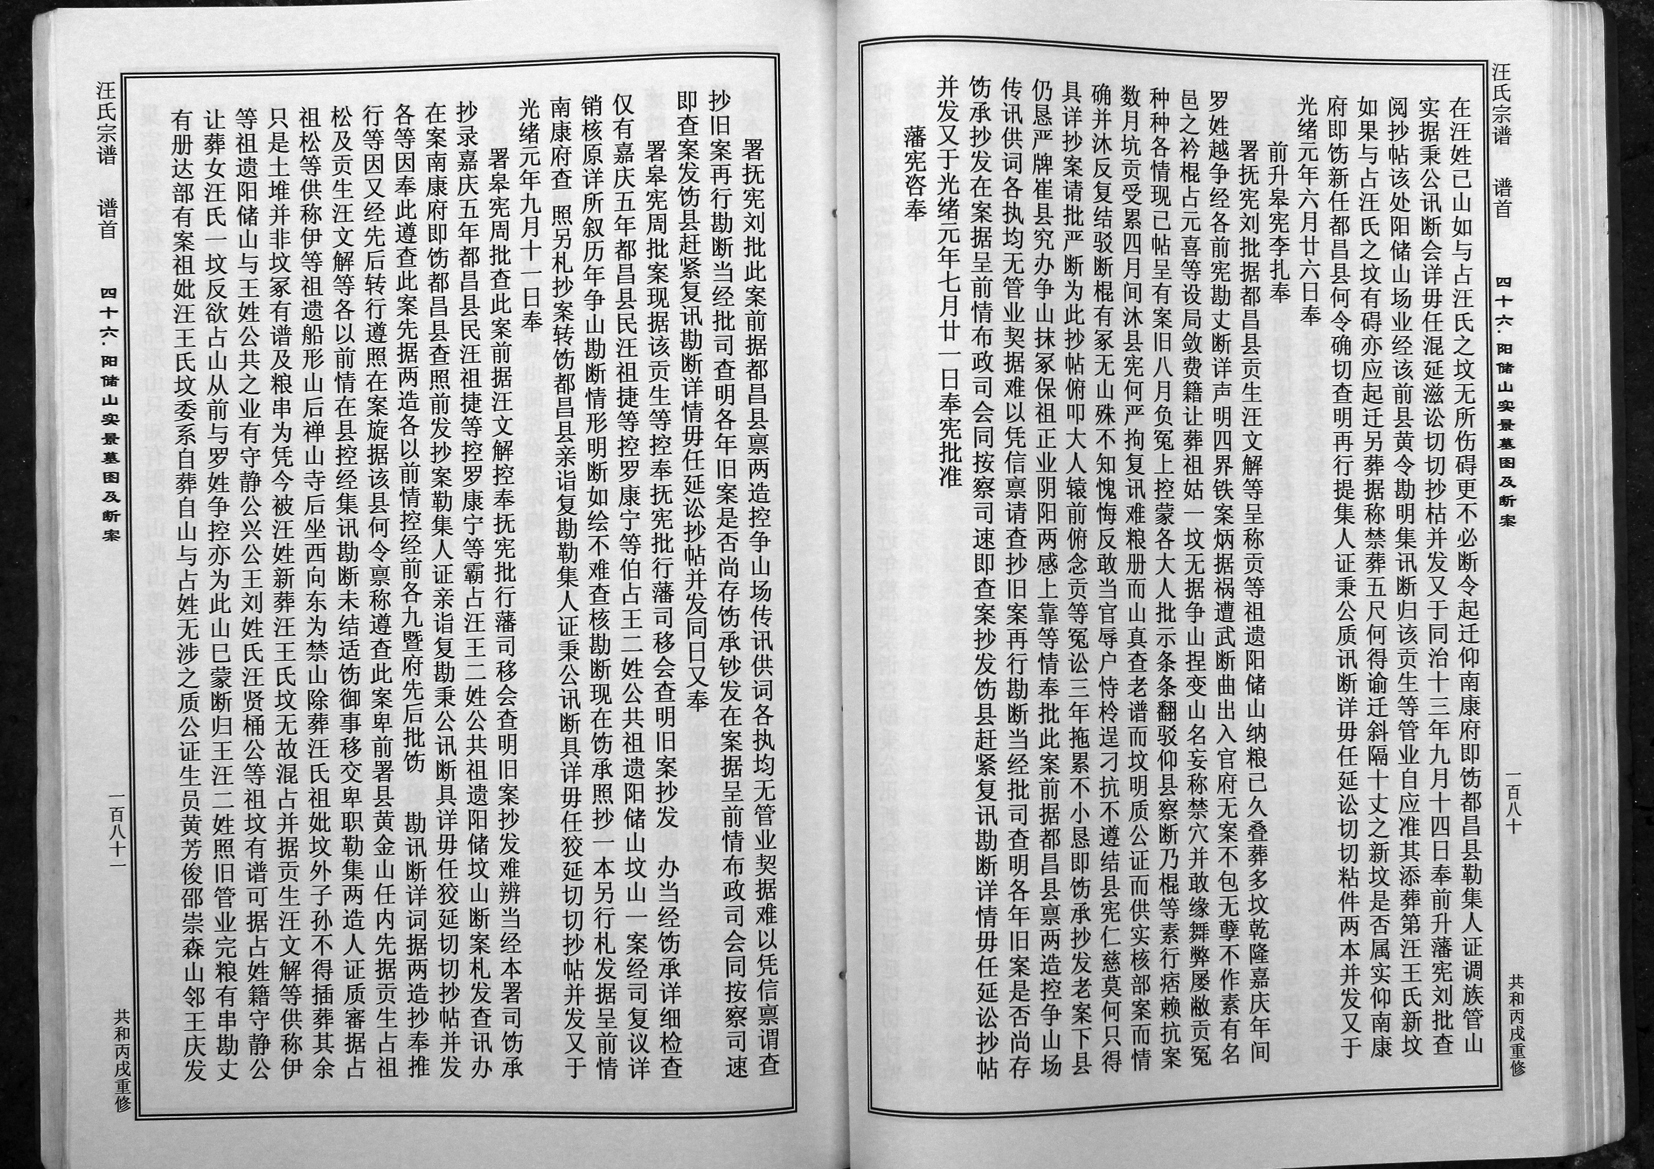 汪氏宗谱 谱首 四十六·阳储山实景墓图及断案 一百八十 共和丙戌重修
在汪姓已山如与占汪氏之坟无所伤碍更不必断令起迁仰南康府即饬都昌县勒集人证调族管山
实据秉公讯断会详毋任混延滋讼切切抄枯并发又于同治十三年九月十四日奉前升藩宪刘批查
阅抄帖该处阳储山场业经该前县黄令勘明集讯断归该贡生等管业自应准其添葬第汪王氏新坟
如果与占汪氏之坟有碍亦应起迁另葬据称禁葬五尺何得谕迁斜隔十丈之新坟是否属实仰南康
府即饬新任都昌县何令确切查明再行提集人证秉公质讯断详毋任延讼切切粘件两本并发又于
光绪元年六月廿六日奉
前升臬宪李扎奉
署抚宪刘批据都昌县贡生汪文解等呈称贡等祖遗阳储山纳粮已久叠葬多坟乾隆嘉庆年间
罗姓越争经各前宪勘丈断详声明四界铁案炳据祸遭武断曲出入官府无案不包无孽不作素有名
邑之衿棍占元喜等设局敛费籍让葬祖姑一坟无据争山捏变山名妄称禁穴并敢缘舞弊屡敝贡冤
种种各情现已帖呈有案旧八月负冤上控蒙各大人批示条条翻驳仰县察断乃棍等素行痞赖抗案
数月坑贡受累四月间沐县宪何严拘复讯难粮册而山真查老谱而坟明质公证而供实核部案而情
确并沐反复结驳断棍有冢无山殊不知愧悔反敢当官辱户恃柃逞刁抗不遵结县宪仁慈莫何只得
具详抄案请批严断为此抄帖俯叩大人辕前俯念贡等冤讼三年拖累不小恳即饬承抄发老案下县
仍恳严牌崔县究办争山抹冢保祖正业阴阳两感上靠等情奉批此案前据都昌县禀两造控争山场
传讯供词各执均无管业契据难以凭信禀请查抄旧案再行勘断当经批司查明各年旧案是否尚存
饬承抄发在案据呈前情布政司会同按察司速即查案抄发饬县赶紧复讯勘断详情毋任延讼抄帖
并发又于光绪元年七月廿一日奉宪批准
藩宪咨奉
署抚宪刘批此案前据都昌县禀两造控争山场传讯供词各执均无管业契据难以凭信禀谓查
抄旧案再行勘断当经批司查明各年旧案是否尚存饬承钞发在案据呈前情布政司会同按察司速
即查案发饬县赶紧复讯勘断详情毋任延讼抄帖并发同日又奉
署臬宪周批案现据该贡生等控奉抚宪批行藩司移会查明旧案抄发 办当经饬承详细检查
仅有嘉庆五年都昌县民汪祖捷等控罗康宁等伯占王二姓公共祖遗阳储山坟山一案经司复议详
销核原详所叙历年争山勘断情形明断如绘不难查核勘断现在饬承照抄一本另行札发据呈前情
南康府查 照另札抄案转饬都昌县亲诣复勘勒集人证秉公讯断具详毋任狡延切切抄帖并发又于
光绪元年九月十一日奉
署臬宪周批查此案前据汪文解控奉抚宪批行藩司移会查明旧案抄发难辨当经本署司饬承
抄录嘉庆五年都昌县民汪祖捷等控罗康宁等霸占汪王二姓公共祖遗阳储坟山断案札发查讯办
在案南康府即饬都昌县查照前发抄案勒集人证亲诣复勘秉公讯断具详毋任狡延切切抄帖并发
各等因奉此遵查此案先据两造各以前情控经前各九暨府先后批饬 勘讯断详词据两造抄奉推
行等因又经先后转行遵照在案旋据该县何令禀称遵查此案卑前署县黄金山任内先据贡生占祖
松及贡生汪文解等各以前情在县控经集讯勘断未结适饬御事移交卑职勒集两造人证质审据占
祖松等供称伊等祖遗船形山后禅山寺后坐西向东为禁山除葬汪氏祖妣坟外子孙不得插葬其余
只是土堆并非坟冢有谱及粮串为凭今被汪姓新葬汪王氏坟无故混占并据贡生汪文解等供称伊
等祖遗阳储山与王姓公共之业有守静公兴公王刘姓氏汪贤桶公等祖坟有谱可据占姓籍守静公
让葬女汪氏一坟反欲占山从前与罗姓争控亦为此山巳蒙断归王汪二姓照旧管业完粮有串勘丈
有册达部有案祖妣汪王氏坟委系自葬自山与占姓无涉之质公证生员黄芳俊邵崇森山邻王庆发
汪氏宗谱 谱首 四十六·阳储山实景墓图及断案 一百八十一 共和丙戌重修